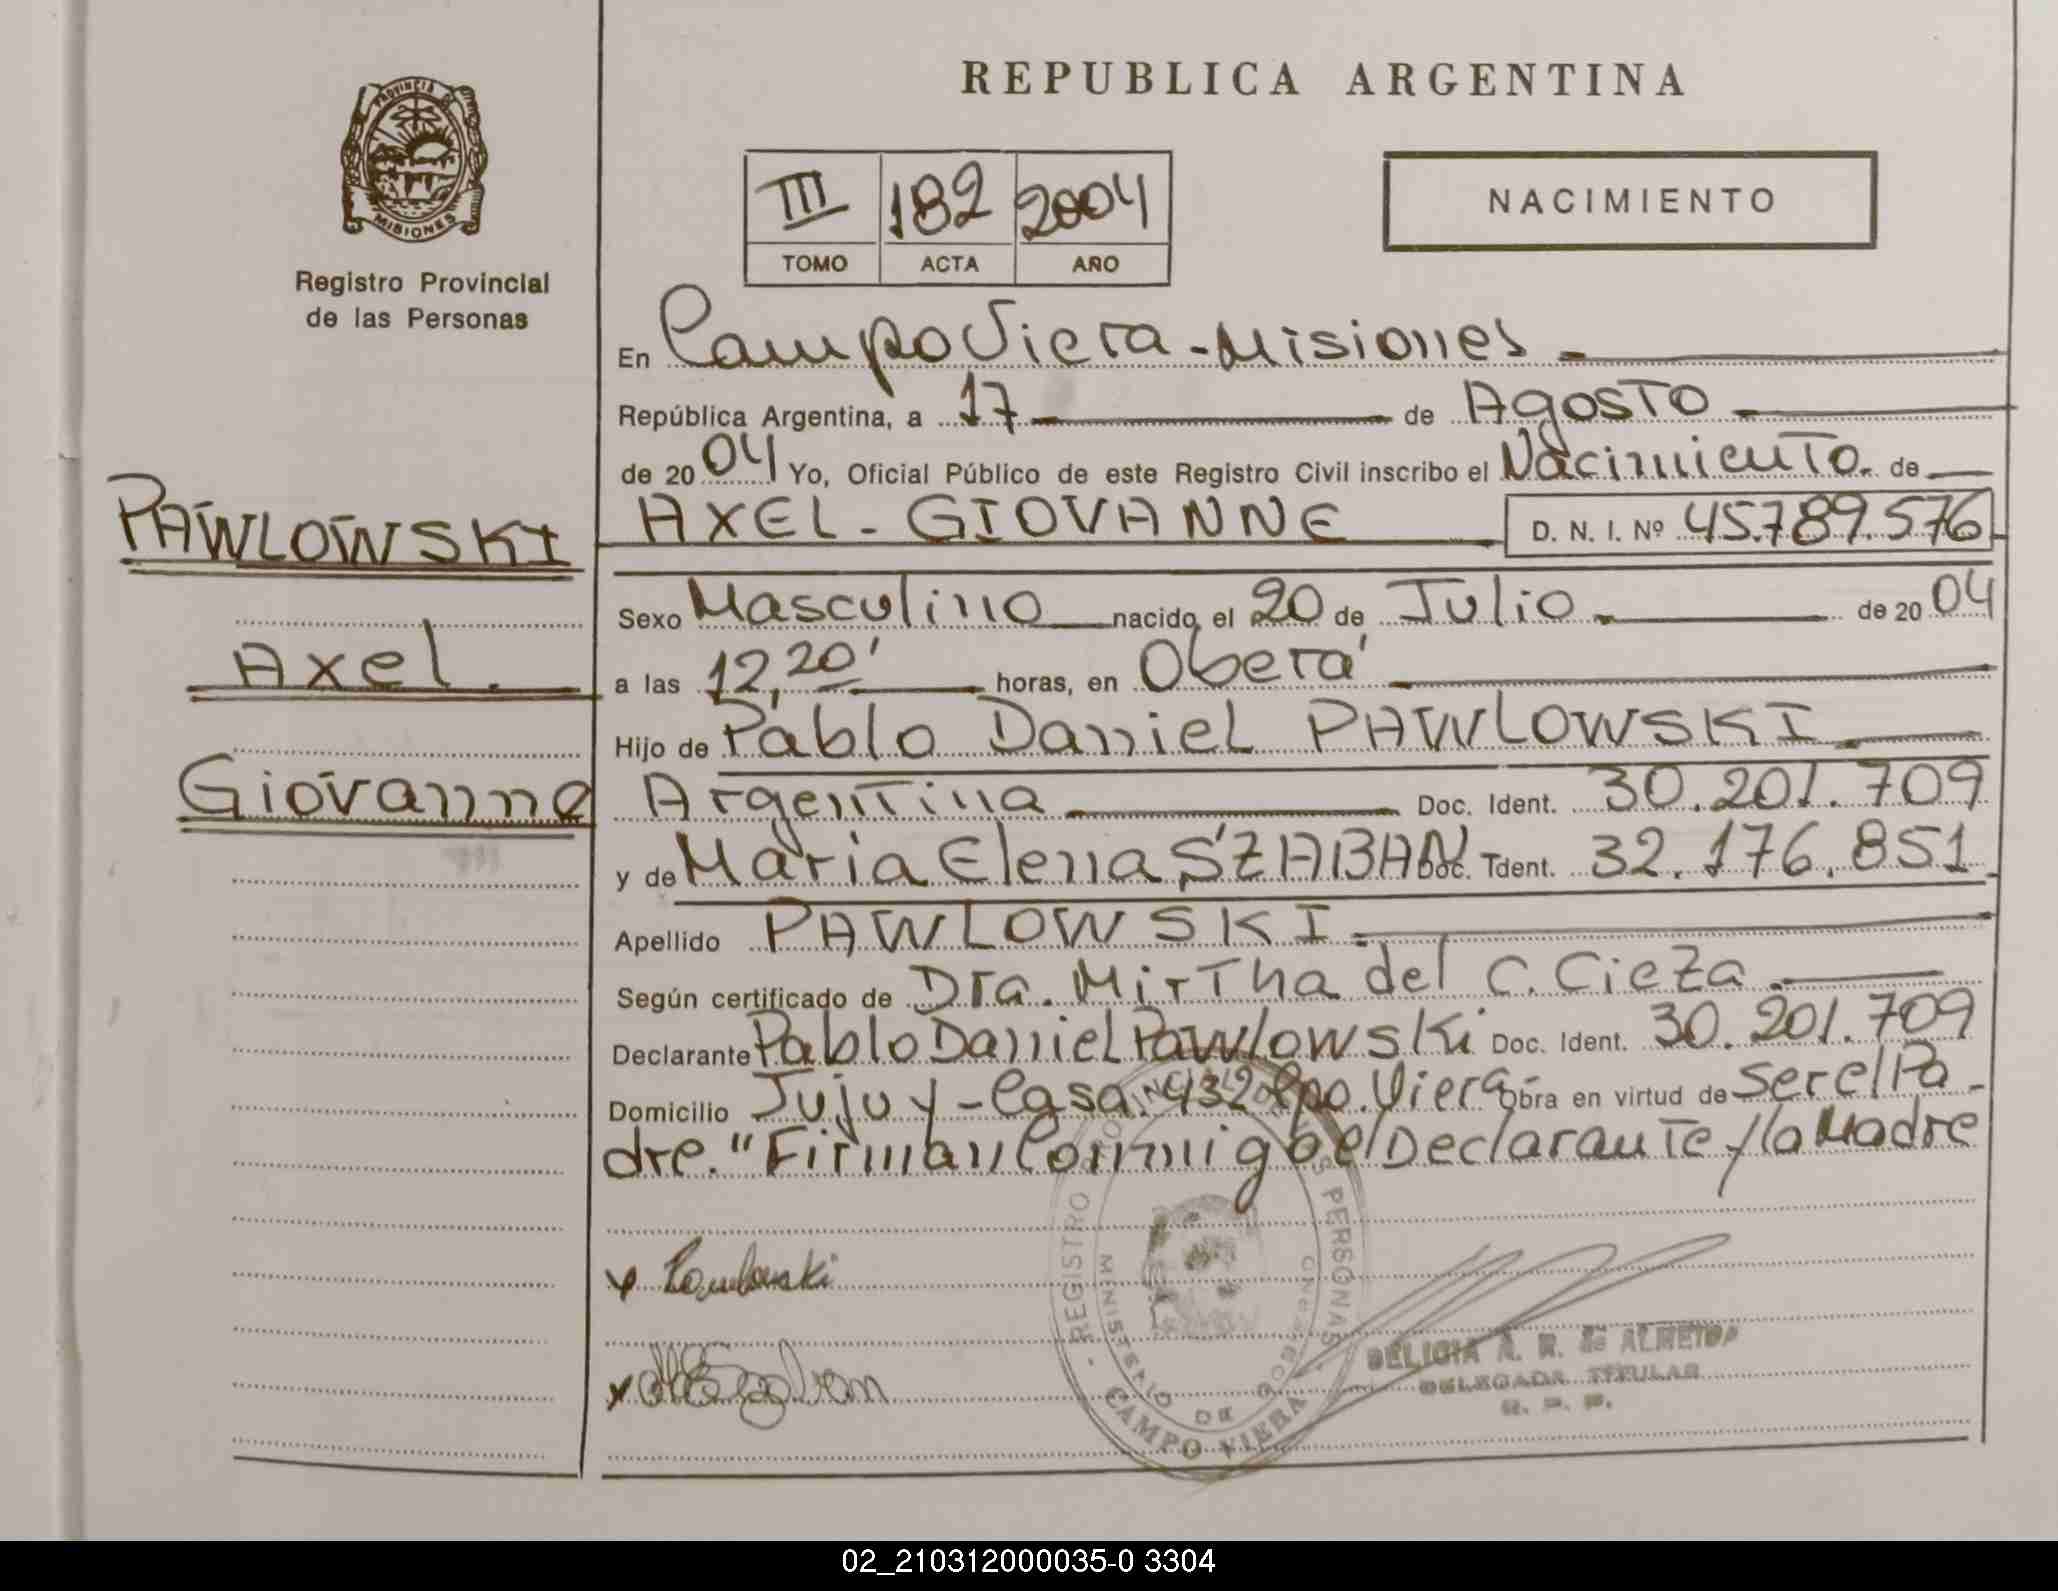 REPUBLICA ARGENTINA
PROVINCIA DE
MISIONES
Registro Provincial
de las Personas
III 182 2004
TOMO ACTA AÑO
NACIMIENTO
En Campo Viera - Misiones
República Argentina, a 17 de Agosto
de 2004 Yo, Oficial Público de este Registro Civil inscribo el Nacimiento de
PAWLOWSKI
AXEL - GIOVANNE D. N. I. Nº 45.789.576
Sexo Masculino nacido el 20 de Julio de 2004
Axel.
a las 12,20' horas, en Oberá
Hijo de Pablo Daniel PAWLOWSKI
Giovanne
Argentina Doc. Ident. 30.201.709
y de María Elena SZABAN Doc. Ident. 32.176.851
Apellido PAWLOWSKI
Según certificado de Dra. Mirtha del C. Cieza
Declarante Pablo Daniel Pawlowski Doc. Ident. 30.201.709
Domicilio Jujuy - Casa. 432 Cpo. Viera Obra en virtud de ser el Pa-
dre. "Firman Conmigo el Declarante y la Madre
x Pawlowski
REGISTRO PROVINCIAL DE LAS PERSONAS
MINISTERIO DE GOBIERNO
CAMPO VIERA
DELICIA A. R. de ALMEIDA
DELEGADA TITULAR
R. P. P.
02_210312000035-0 3304